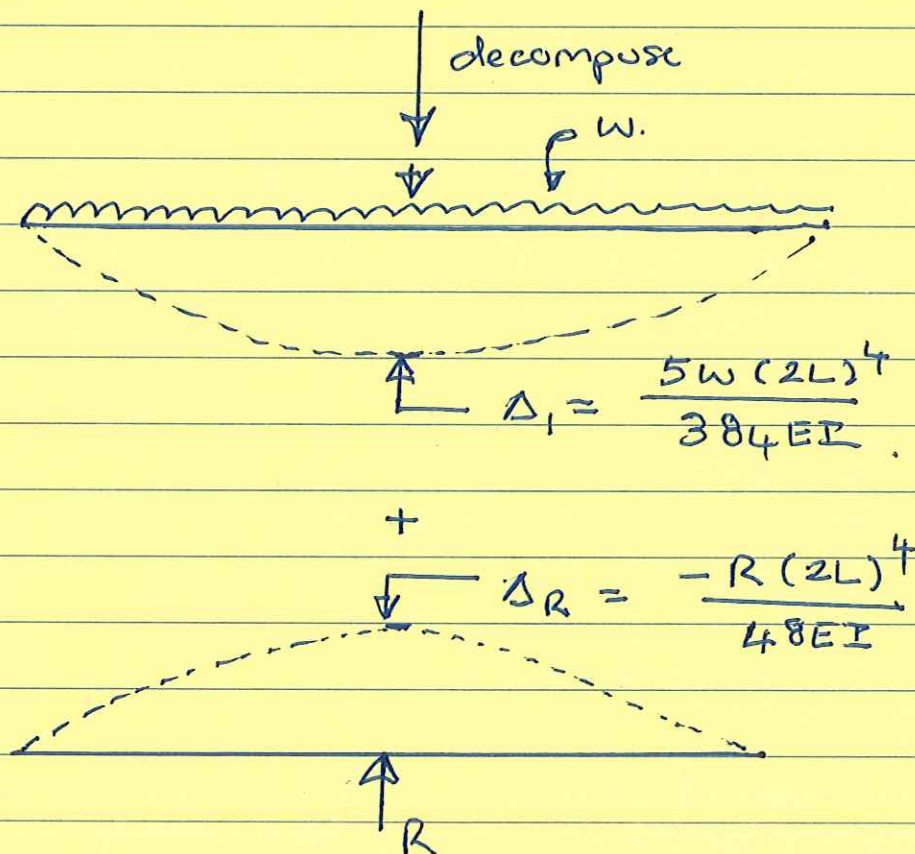 decompose
w.
Δ₁ = 5w(2L)⁴ / 384EI .
+
Δ_R = -R(2L)⁴ / 48EI
R